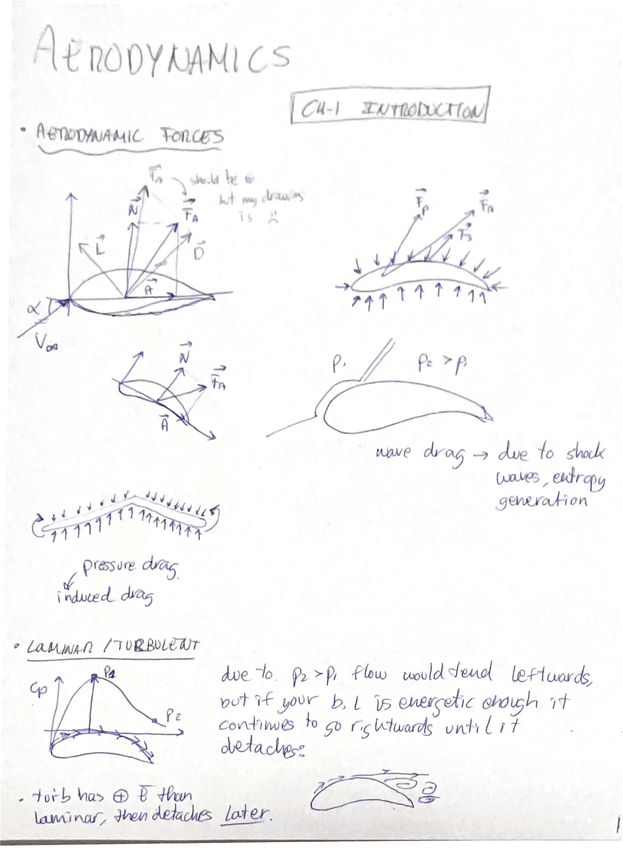 AERODYNAMICS
CH-1 INTRODUCTION
• AERODYNAMIC FORCES
F⃗A should be ⊕
but my drawing
is
N⃗ F⃗A
L⃗ D⃗
A⃗
α
V∞
F⃗p F⃗A
F⃗s
N⃗
F⃗A
A⃗
p1 p2 > p1
wave drag → due to shock
waves, entropy
generation
pressure drag
induced drag
• LAMINAR / TURBULENT
Cp P1
P2
due to p2 > p1 flow would tend leftwards,
but if your b.L is energetic enough it
continues to go rightwards until it
detaches:
• turb has ⊕ E than
laminar, then detaches later.
1